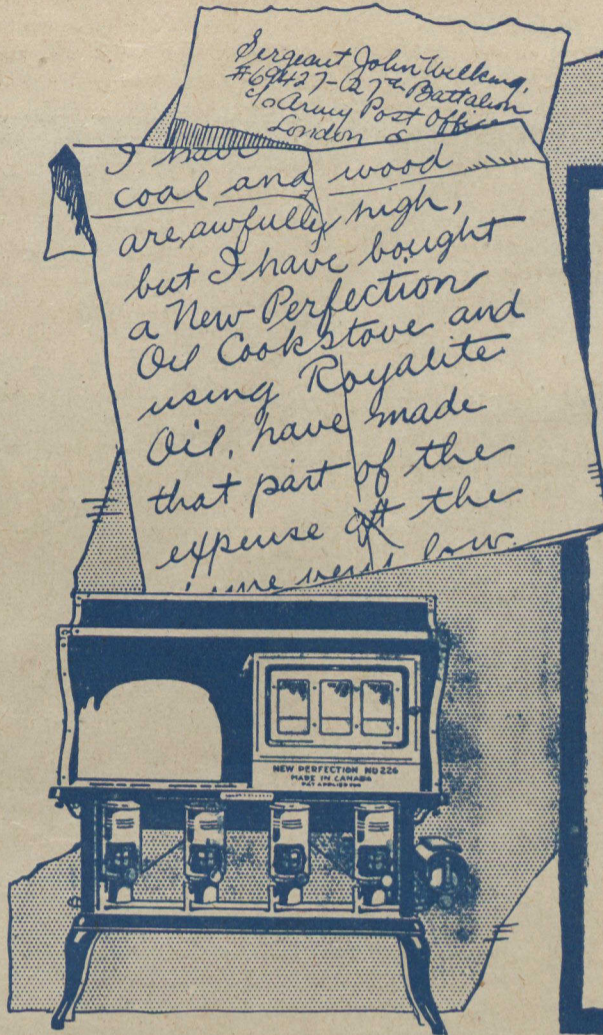 Sergeant John Wilkins,
#69427-27th Battalion
c/o Army Post Office
London
I have
coal and wood
are awfully high,
but I have bought
a New Perfection
Oil Cookstove and
using Royalite
Oil, have made
that part of the
expense at the
very low.
NEW PERFECTION NO 226
MADE IN CANADA
PAT APPLIED FOR